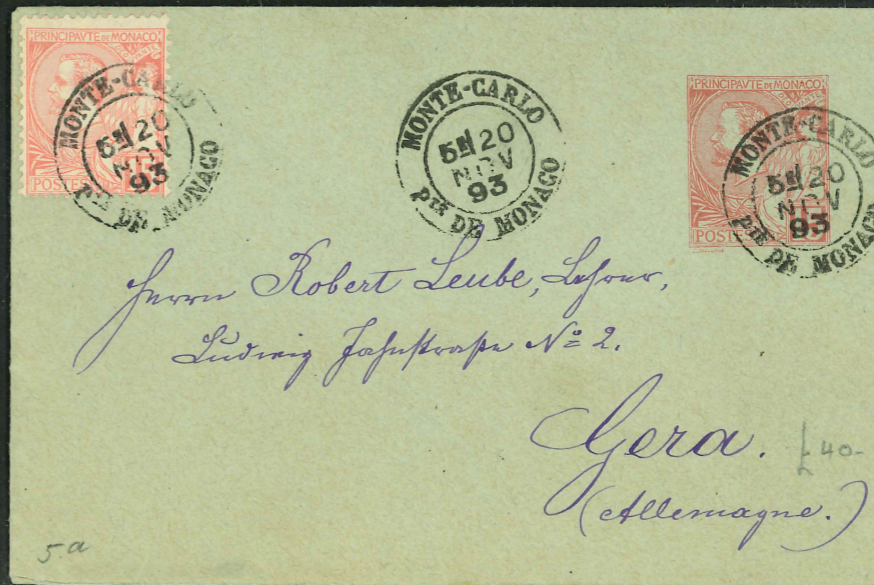 PRINCIPAVTE DE MONACO
POSTES
15
MONTE-CARLO
5E 20
NOV
93
Pté DE MONACO
MONTE-CARLO
5E 20
NOV
93
Pté DE MONACO
PRINCIPAVTE DE MONACO
POSTES
15
MONTE-CARLO
5E 20
NOV
93
Pté DE MONACO
Herrn Robert Leube, Lehrer,
Ludwig Jahnstraße No 2.
Gera.
(Allemagne.)
£40-
5a